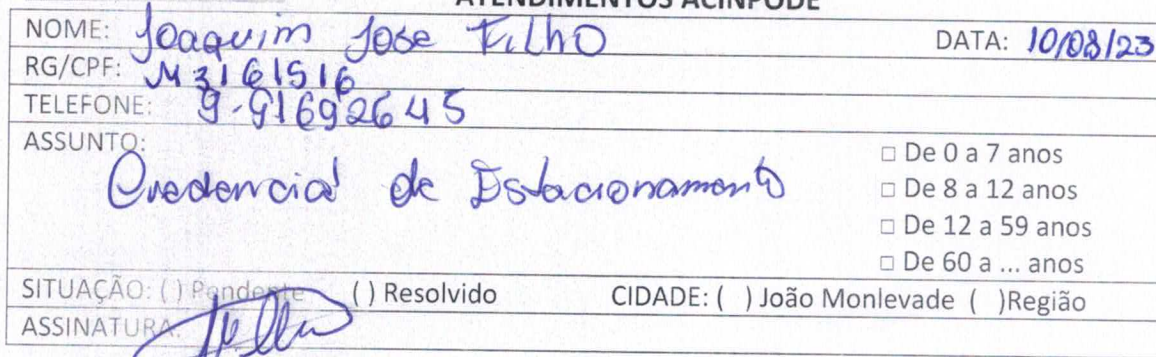 ATENDIMENTOS ACINPODE
NOME: Joaquim Jose Filho DATA: 10/08/23
RG/CPF: M3161516
TELEFONE: 9-91692645
ASSUNTO:
Credencial de Estacionamento
□ De 0 a 7 anos
□ De 8 a 12 anos
□ De 12 a 59 anos
□ De 60 a ... anos
SITUAÇÃO: ( ) Pendente ( ) Resolvido CIDADE: ( ) João Monlevade ( )Região
ASSINATURA: